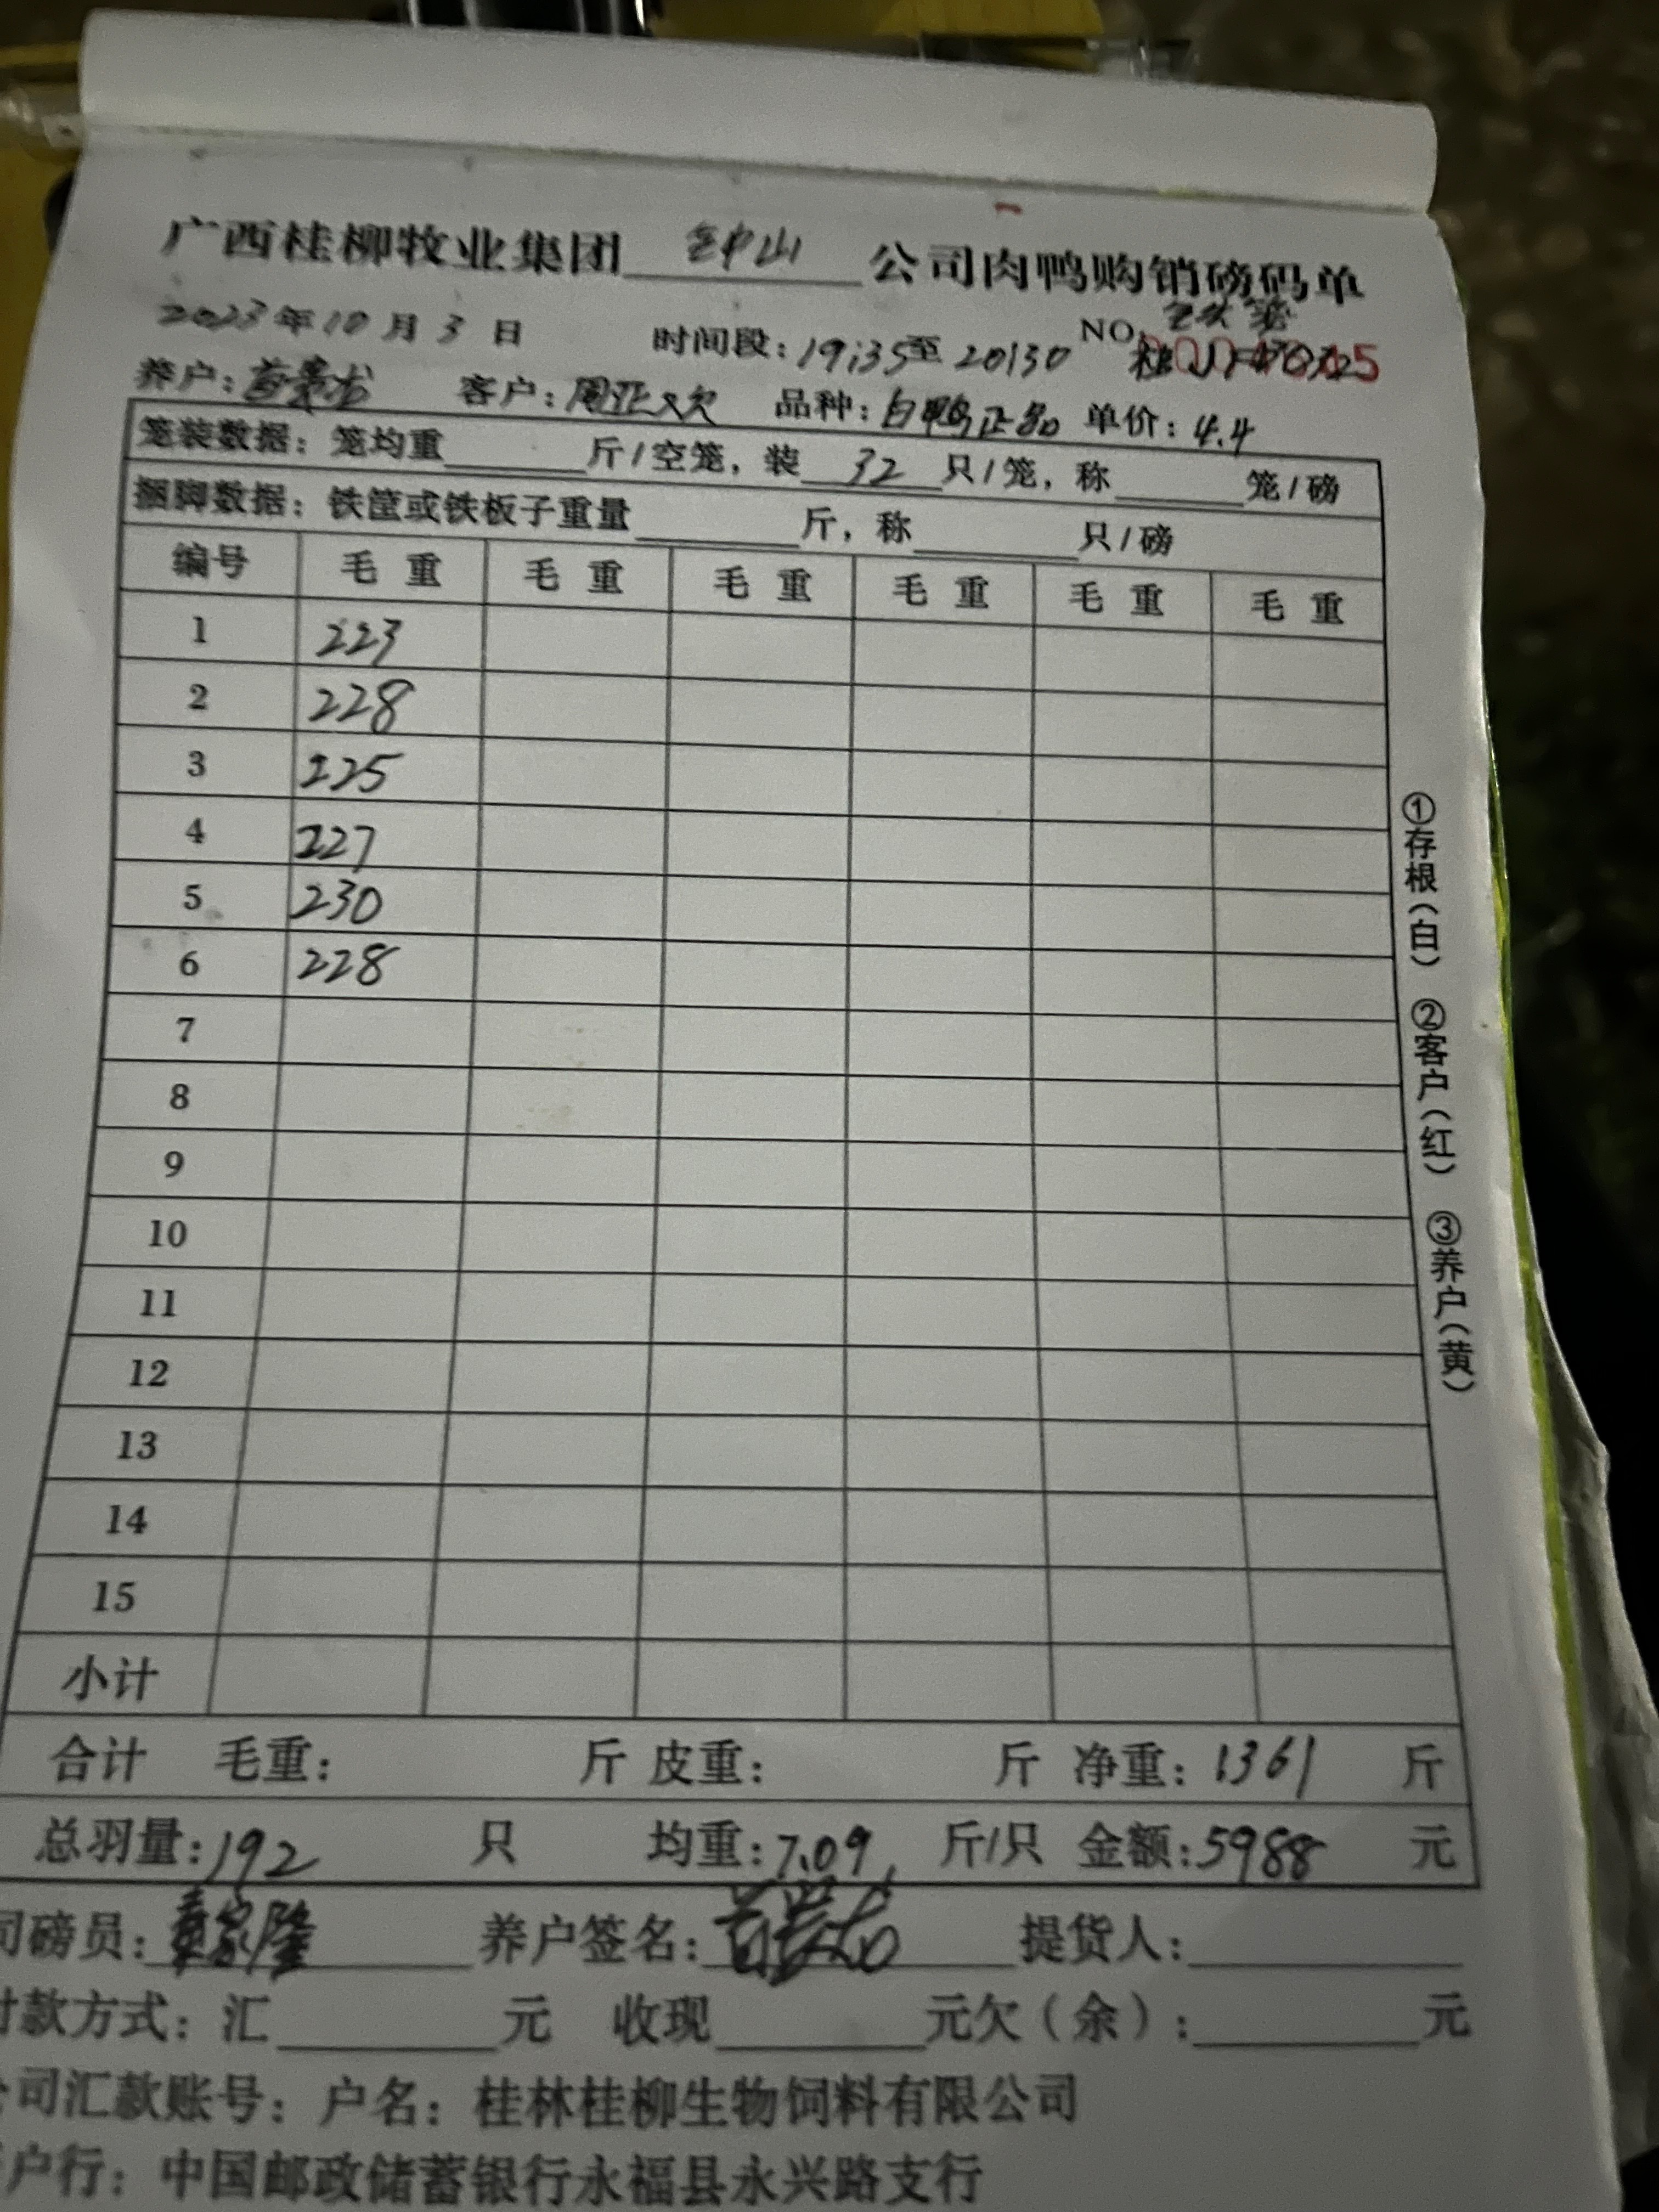 广西桂柳牧业集团 钟山 公司肉鸭购销磅码单
2023年10月3日 时间段：19:35至20:30 NO.
养户： 客户：周 品种：白鸭正品 单价：4.4
笼装数据：笼均重 斤/空笼，装 32 只/笼，称 笼/磅
捆脚数据：铁筐或铁板子重量 斤，称 只/磅
编号 毛重 毛重 毛重 毛重 毛重 毛重
1 223
2 228
3 225
4 227
5 230
6 228
7
8
9
10
11
12
13
14
15
小计
合计 毛重： 斤 皮重： 斤 净重：1361 斤
总羽量：192 只 均重：7.09 斤/只 金额：5988 元
司磅员：家隆 养户签名： 提货人：
付款方式：汇 元 收现 元欠（余）： 元
公司汇款账号：户名：桂林桂柳生物饲料有限公司
户行：中国邮政储蓄银行永福县永兴路支行
①存根（白） ②客户（红） ③养户（黄）